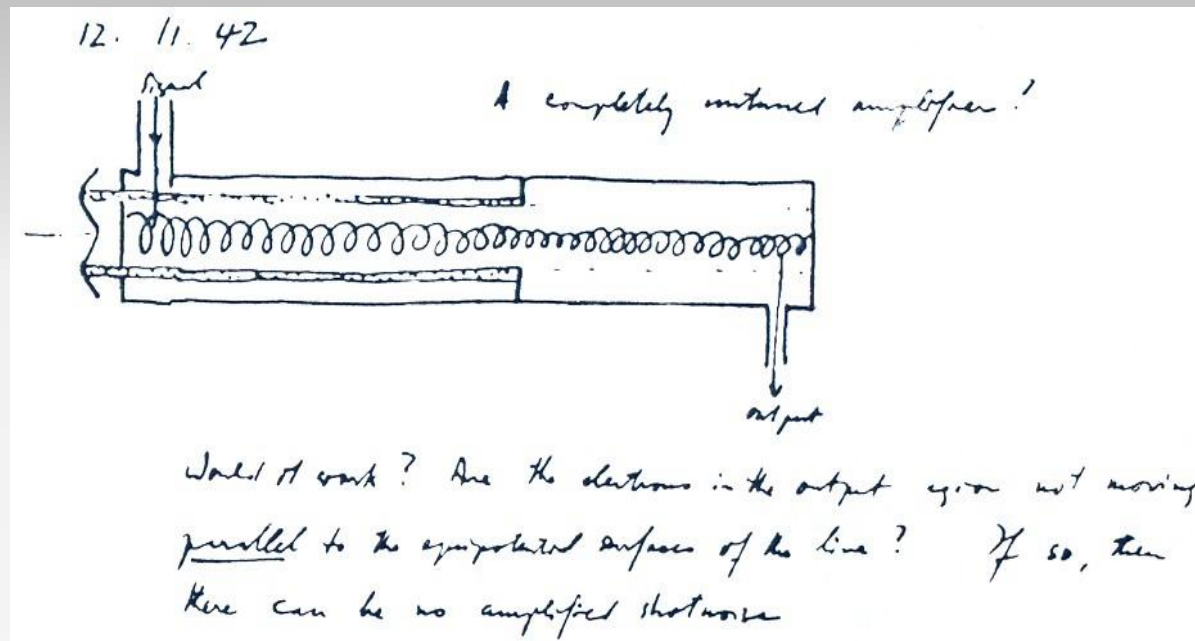 12. 11. 42
Signal
A completely untuned amplifier!
output
Would it work? Are the electrons in the output region not moving
parallel to the equipotential surfaces of the line? If so, then
there can be no amplified shotnoise